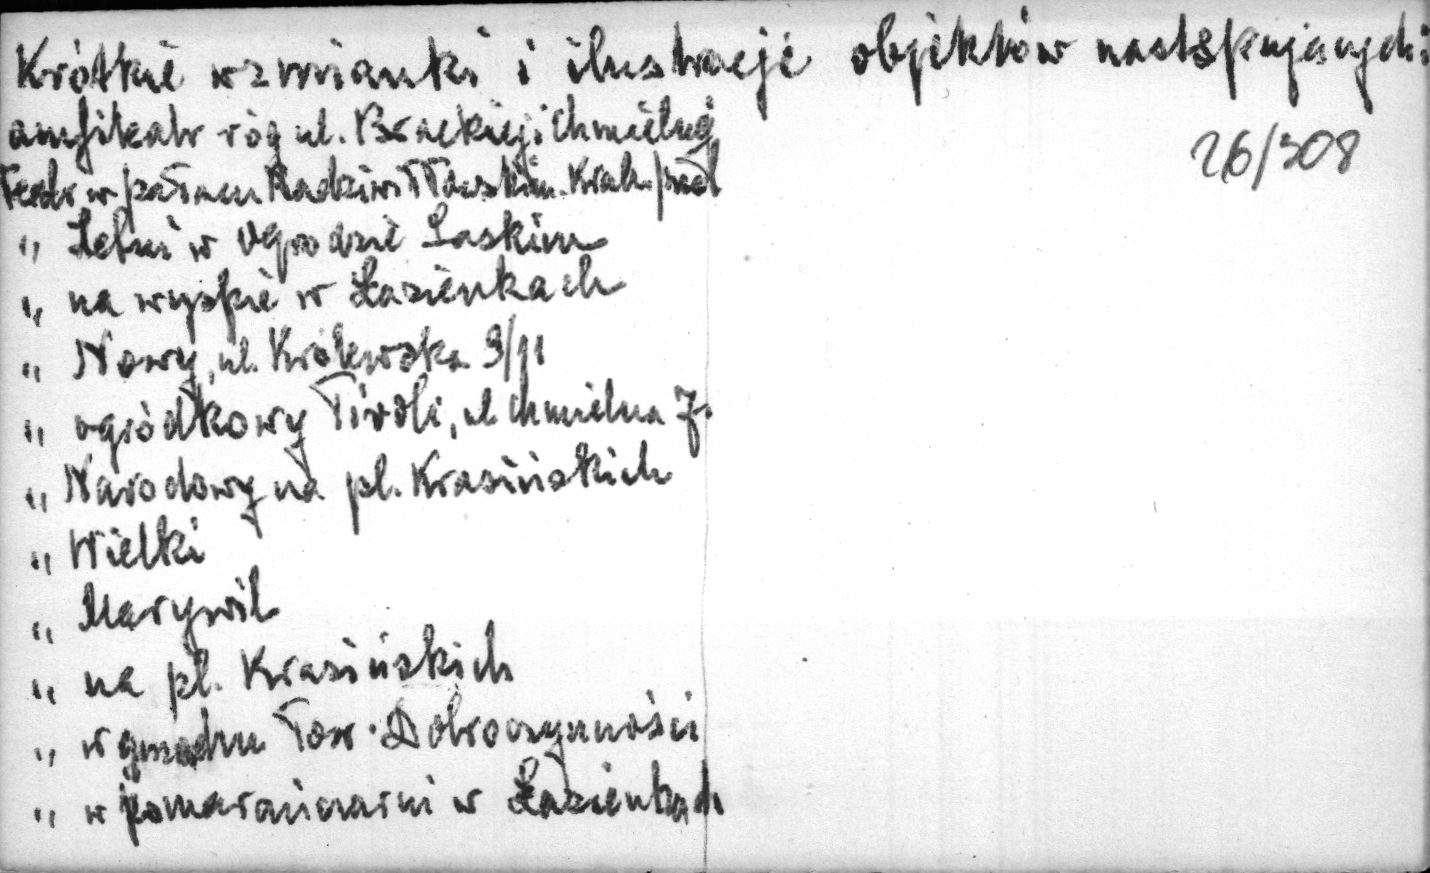 Krótkie wzmianki i ilustracje objektów następujących:
amfiteatr róg ul. Brackiej i Chmielnej
26/308
Teatr w pałacu Radziwiłłowskim. Krak. przed
„ Letni w Ogrodzie Saskim
„ na wyspie w Łazienkach
„ Nowy, ul. Królewska 9/11
„ ogródkowy Tivoli, ul Chmielna 7.
„ Narodowy na pl. Krasińskich
„ Wielki
„ Marywil
„ na pl. Krasińskich
„ w gmachu Tow. Dobroczynności
„ w pomarańczarni w Łazienkach